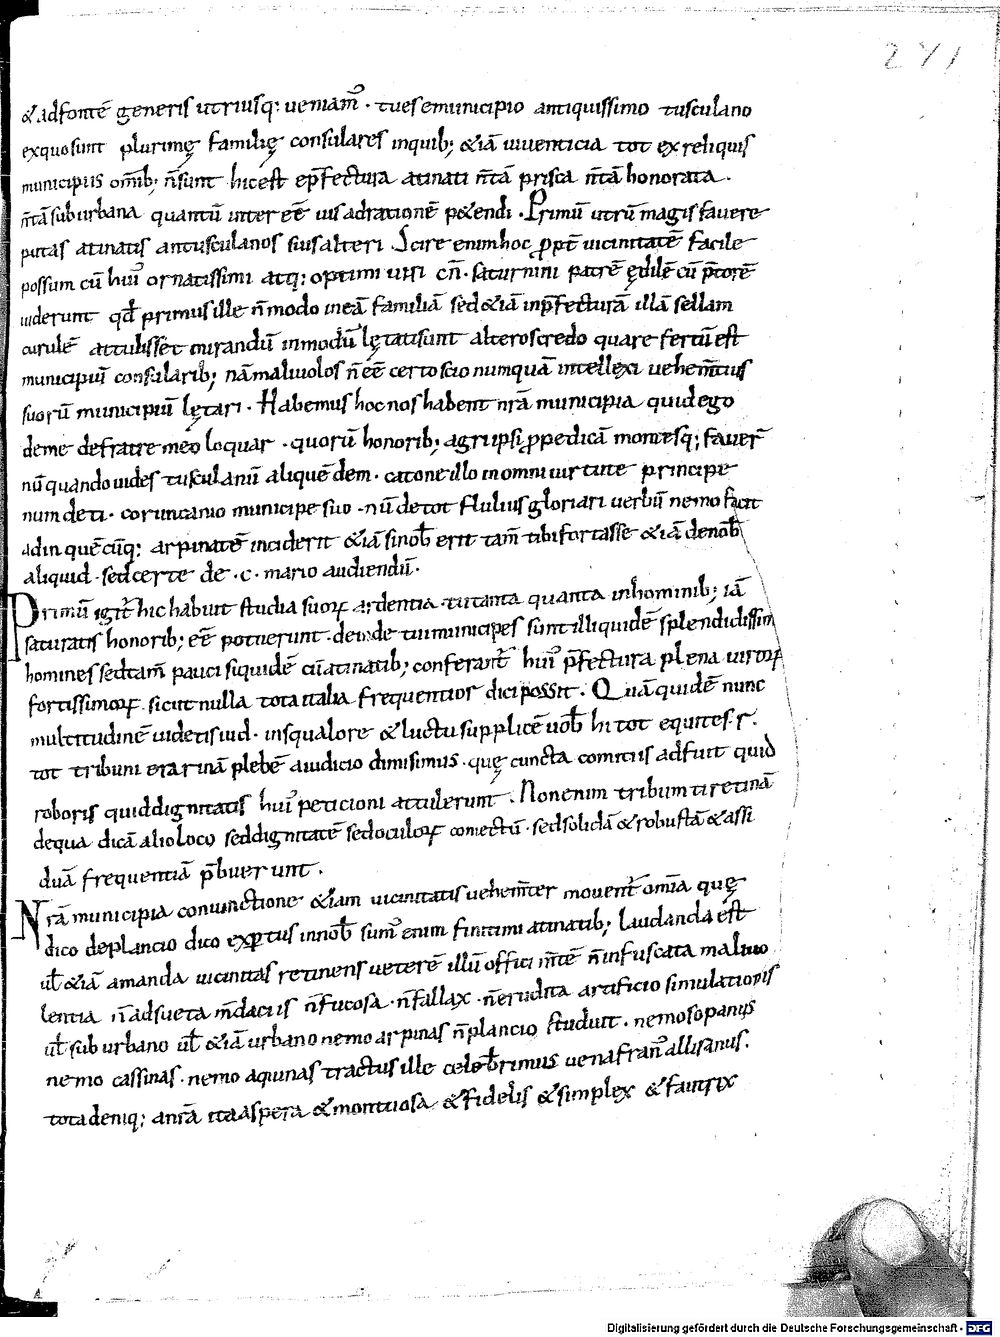 271
& ad fontē generis utriusq; ueniam᷒ · tu es e municipio antiquissimo tusculano
ex quo sunt plurimę familię consulares in quib; & iā iuuenticia tot ex reliquis
municipiis om̄ib; n̄ sunt hic est ep̄fectura atinati n̄ tā prisca n̄ tā honorata ·
n̄ tā suburbana quantū interēē uis ad rationē p&endi · Primū utrū magis fauere
putas atinatis an tusculanos suis alteri Scire enim hoc ꝓpt̄ uicinitatē facile
possum cū hui᷒ ornatissimi atq; optimi uiri cn̄ · saturnini patrē ędilē cū p̄torē
uiderunt qd̄ primus ille n̄ modo in eā familiā sed &iā in p̄fecturā illā sellam
curulē attulisset mirandū in modū lętati sunt alteros credo quare fertū est
municipiū consularib; nā maliuolos n̄ ēē certo scio numquā intellexi uehem̄tius
suorū municipiū lętari · Habemus hoc nos habent nrā municipia quid ego
de me de fratre meo loquar · quorū honorib; agri ipsi ꝓpe dicā montesq; fauer̄
nū quando uides tusculanū aliquē de m · catone illo in omni uirtute principe
num de ti · coruncanio municipe suo · nū de tot fluluis gloriari uerbū nemo facit
ad in quēcūq; arpinatē inciderit &iā si nob̄ erit tam̄ tibi fortasse &iā de nob̄
aliquid · sed certe de · c · mario audiendū ·
Primū igit̄ hic habuit studia suoꝝ ardentia · tu tanta quanta in hominib; iā
saturatis honorib; ēē potuerunt · deinde tui municipes sunt illi quidē splendidissim
homines sed tam̄ pauci siquidē cū atinatib; conferant̄ hui᷒ p̄fectura plena uiroꝝ
fortissimoꝝ · sicut nulla tota italia frequentior dici possit · Quā quidē nunc
multitudinē uidetis iud · in squalore & luctu supplicē uob̄ hi tot equites r ·
tot tribuni erarinā plebē a iudicio dimisimus · quę cuncta comitiis adfuit quid
roboris quid dignitatis hui᷒ peticioni attulerunt · Non enim tribum ti retinā
de qua dicā alio loco sed dignitatē sed oculoꝝ coniectū · sed solidā & robustā & assi
duā frequentiā p̄buerunt ·
Nrā municipia coniunctione &iam uicinitatis uehem̄ter mouent̄ om̄ia quę
dico de plancio dico exꝑtus in nob̄ sum᷒ enim finitimi atinatib; laudanda est
ul̄ &iā amanda uicinitas retinens ueterē illū offici m̄tē n̄ infuscata maliuo
lentia n̄ adsueta m̄daciis n̄ fucosa · n̄ fallax · n̄ erudita artificio simulationis
ul̄ suburbano ul̄ &iā urbano nemo arpinas n̄ plancio studuit · nemo sopanus
nemo cassinas · nemo aquinas tractus ille celeb̄rimus uenafran᷒ allisanus ·
tota deniq; a nrā ita aspera & montuosa & fidelis & simplex & fautrix
Digitalisierung gefördert durch die Deutsche Forschungsgemeinschaft - DFG